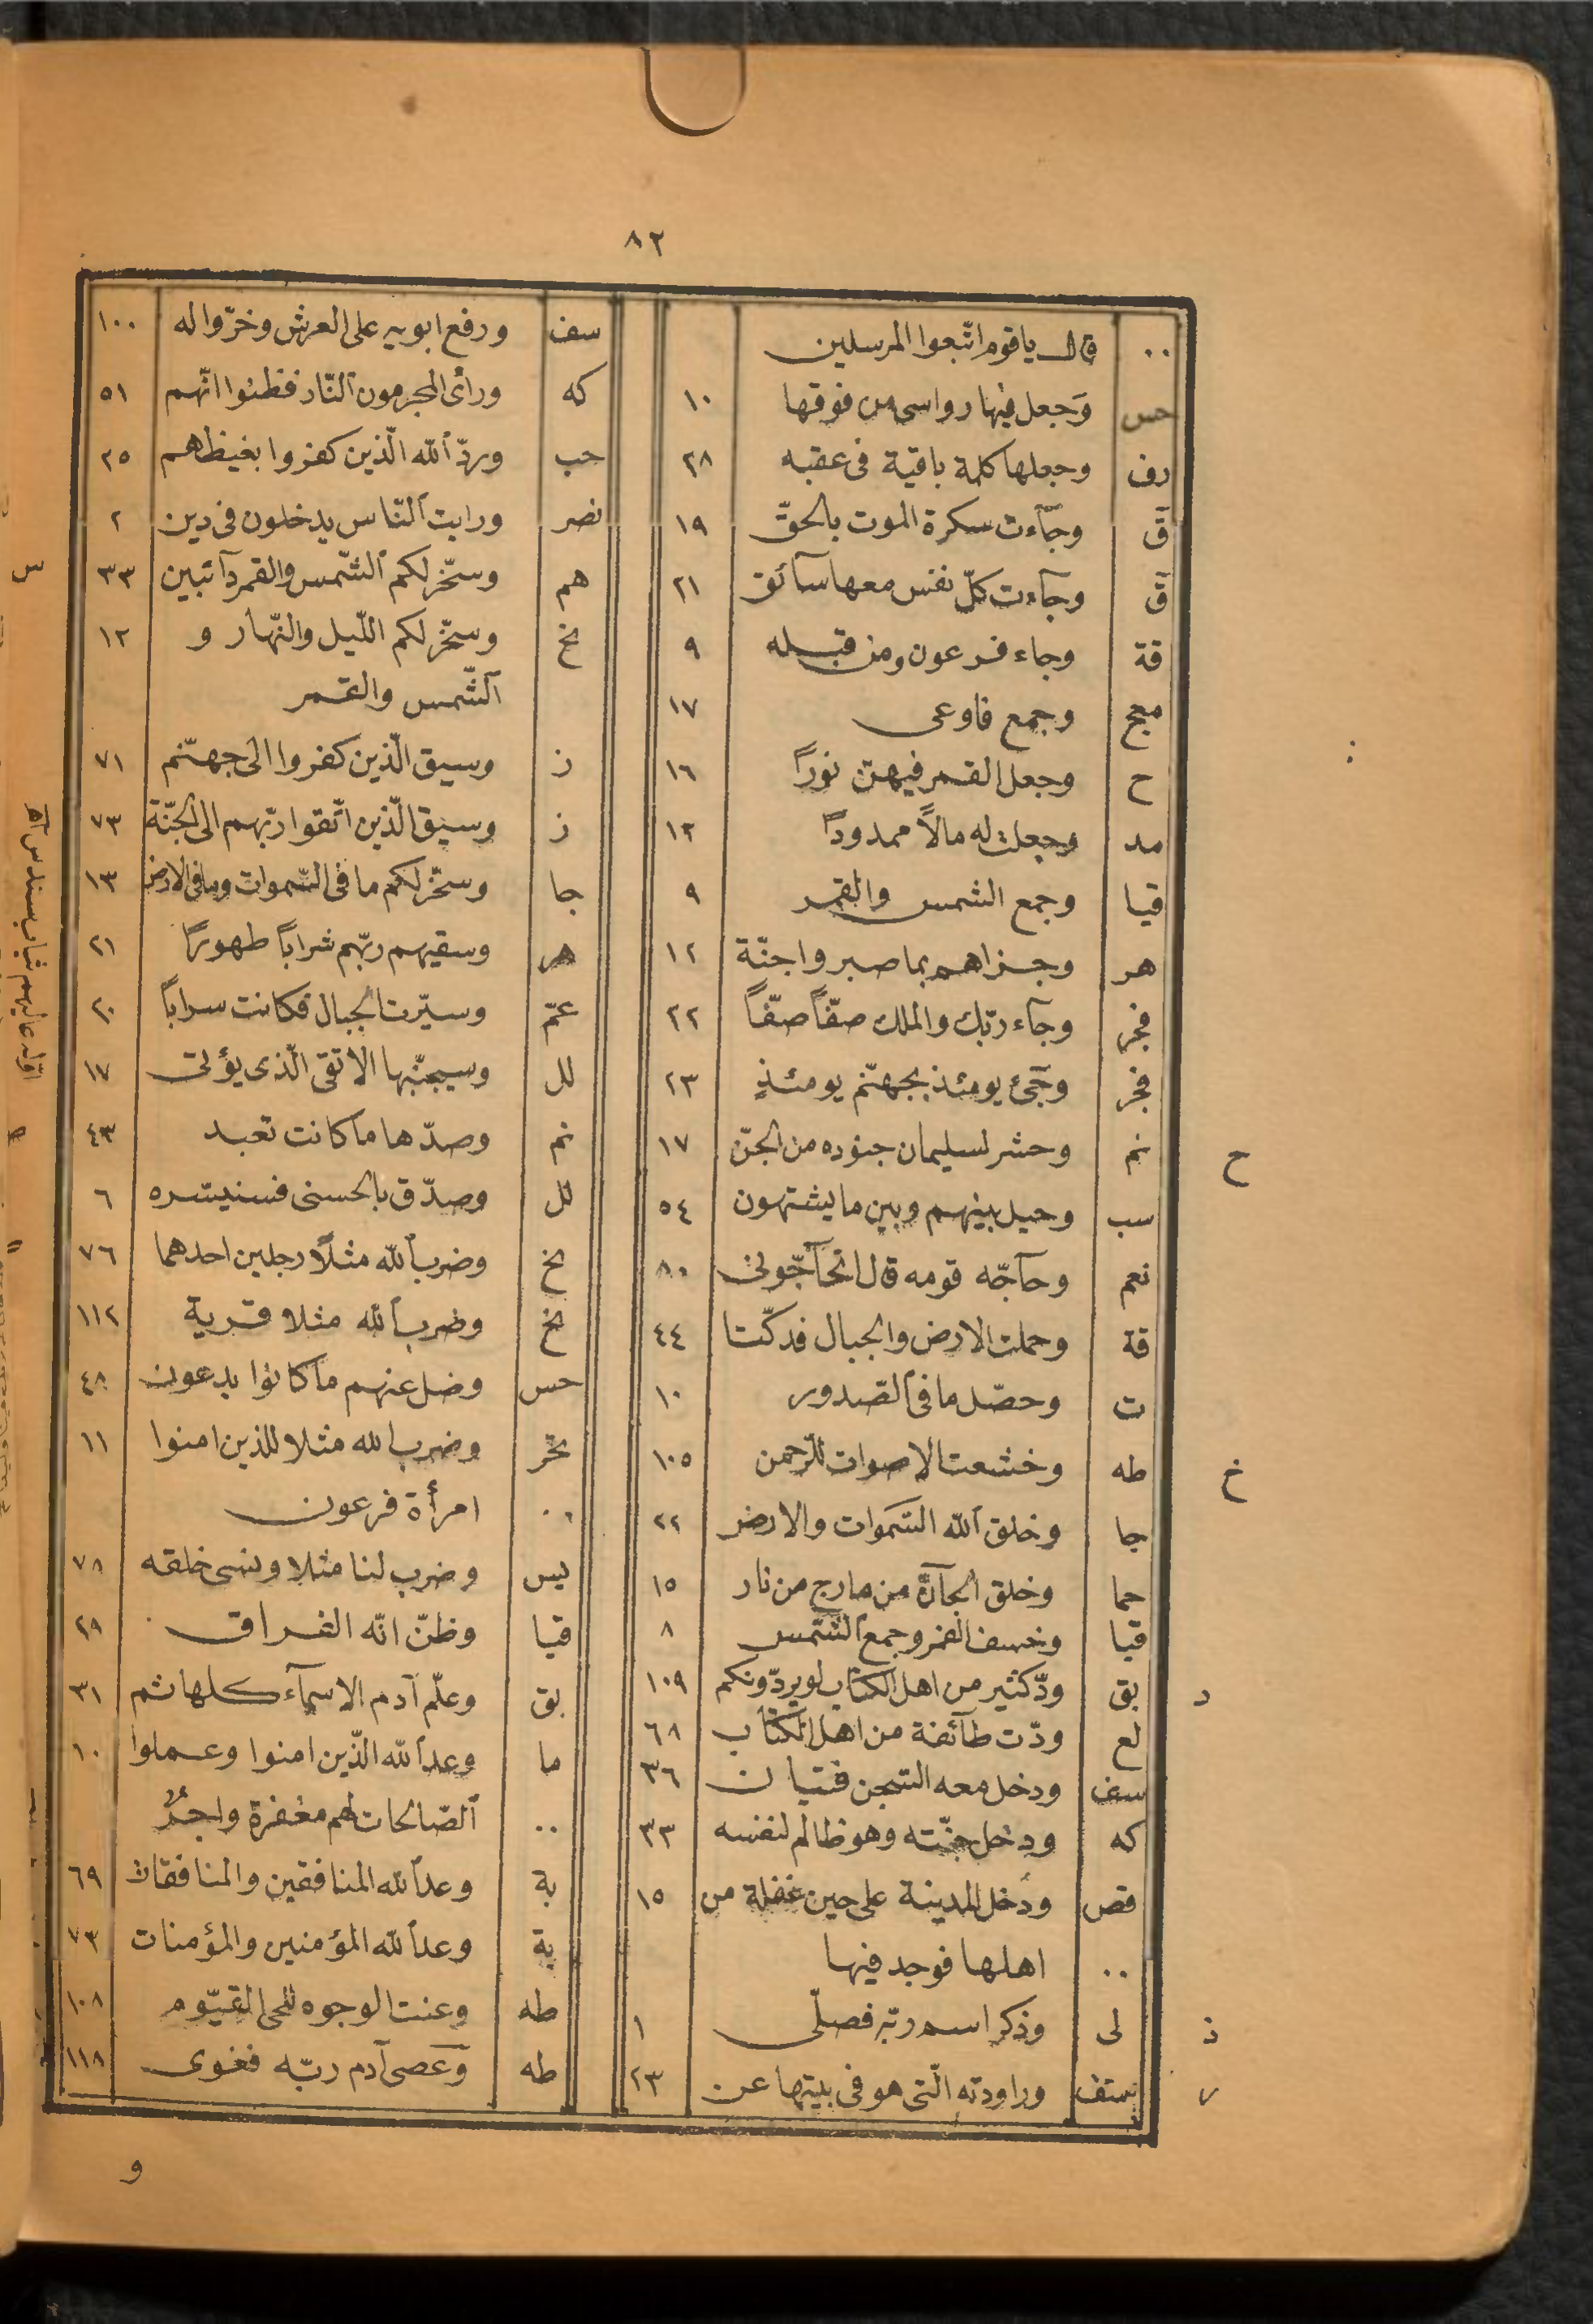 ٨٢
٠٠ قال ياقوم اتّبعوا المرسلين
حس وَجعل فيها رواسى من فوقها ١٠
رف وجعلها كلمة باقية فى عقبه ٢٨
قٓ وجآءت سكرة الموت بالحقّ ١٩
قٓ وجآءت كلّ نفس معها سآئق ٢١
قة وجاء فرعون ومن قبله ٩
مع وجمع فاوعى ١٧
ح وجعل القمر فيهنّ نورًا ١٦
مد وجعلت له مالاً ممدودًا ١٢
قيا وجمع الشمس والقمر ٩
هر وجزاهم بما صبروا جنّة ١٢
فجر وجآء ربّك والملك صفّاً صفّاً ٢٢
فجر وجَىء يومئذ بجهنّم يومئذٍ ٢٣
نم وحشر لسليمان جنوده من الجنّ ١٧
ح
سب وحيل بينهم وبين ما يشتهون ٥٤
نعم وحآجّه قومه قال اتحآجّونى ٨٠
قة وحملت الارض والجبال فدكّتا ٤٤
ت وحصّل ما فى الصّدور ١٠
طه وخشعت الاصوات للرّحمن ١٠٥
خ
جا وخلق ٱلله السّمَوات والارض ٢٢
حما وخلق الجآنّ من مارج من نار ١٥
قيا وخسف القمر وجمع الشّمس ٨
بق ودّ كثير من اهل الكتاب لو يردّونكم ١٠٩
د
لع ودّت طآئفة من اهل الكتاب ٦٨
سف ودخل معه السّجن فتيان ٣٦
كه ودخل جنّته وهو ظالم لنفسه ٣٣
قص ودَخل المدينة على حين غفلة من ١٥
٠٠ اهلها فوجد فيها
لى وذكر اسم ربّه فصلّى ١
ذ
سف وراودته الّتى هو فى بيتها عن ٢٣
ر
سف ورفع ابويه على العرش وخرّوا له ١٠٠
كه ورأى المجرمون النّار فظنوا انّهم ٥١
حب وردّ ٱلله الّذين كفروا بغيظهم ٢٥
نصر ورايت النّاس يدخلون فى دين ٢
هم وسخّر لكم الشّمس والقمر دآئبين ٣٣
س
نخ وسخّر لكم اللّيل والنّهار و ١٢
الشّمس والقمر
ز وسيق الّذين كفروا الى جهنّم ٧١
ز وسيق الّذين اتّقوا ربّهم الى الجنّة ٧٣
جا وسخّر لكم ما فى السّموات وما فى الارض ١٣
هر وسقيهم ربّهم شراباً طهورًا ٢١
عمّ وسيّرت الجبال فكانت سراباً ٢٠
لل وسيجنّبها الاتقى الّذى يؤتى ١٧
نم وصدّها ما كانت تعبد ٤٣
لل وصدّق بالحسنى فسنيسّره ٦
نخ وضرب ٱلله مثلًا رجلين احدهما ٧٦
نخ وضرب ٱلله مثلا قرية ١١٢
حس وضل عنهم ما كانوا يدعون ٤٨
تحر وضرب الله مثلا للذين امنوا ١١
٠٠ امرأة فرعون
يس وضرب لنا مثلا ونسى خلقه ٧٨
قيا وظنّ انّه الفراق ٢٨
بق وعلّم آدم الاسمآء كلها ثم ٣١
ما وعد ٱلله الّذين امنوا وعملوا ١٠
٠٠ ٱلصّالحات لهم مغفرة واجرٌ
بة وعد ٱلله المنافقين والمنافقات ٦٩
بة وعد ٱلله المؤمنين والمؤمنات ٧٣
طه وعنت الوجوه للحى القيّوم ١٠٨
طه وَعَصى آدم ربّه فغوى ١١٨
و